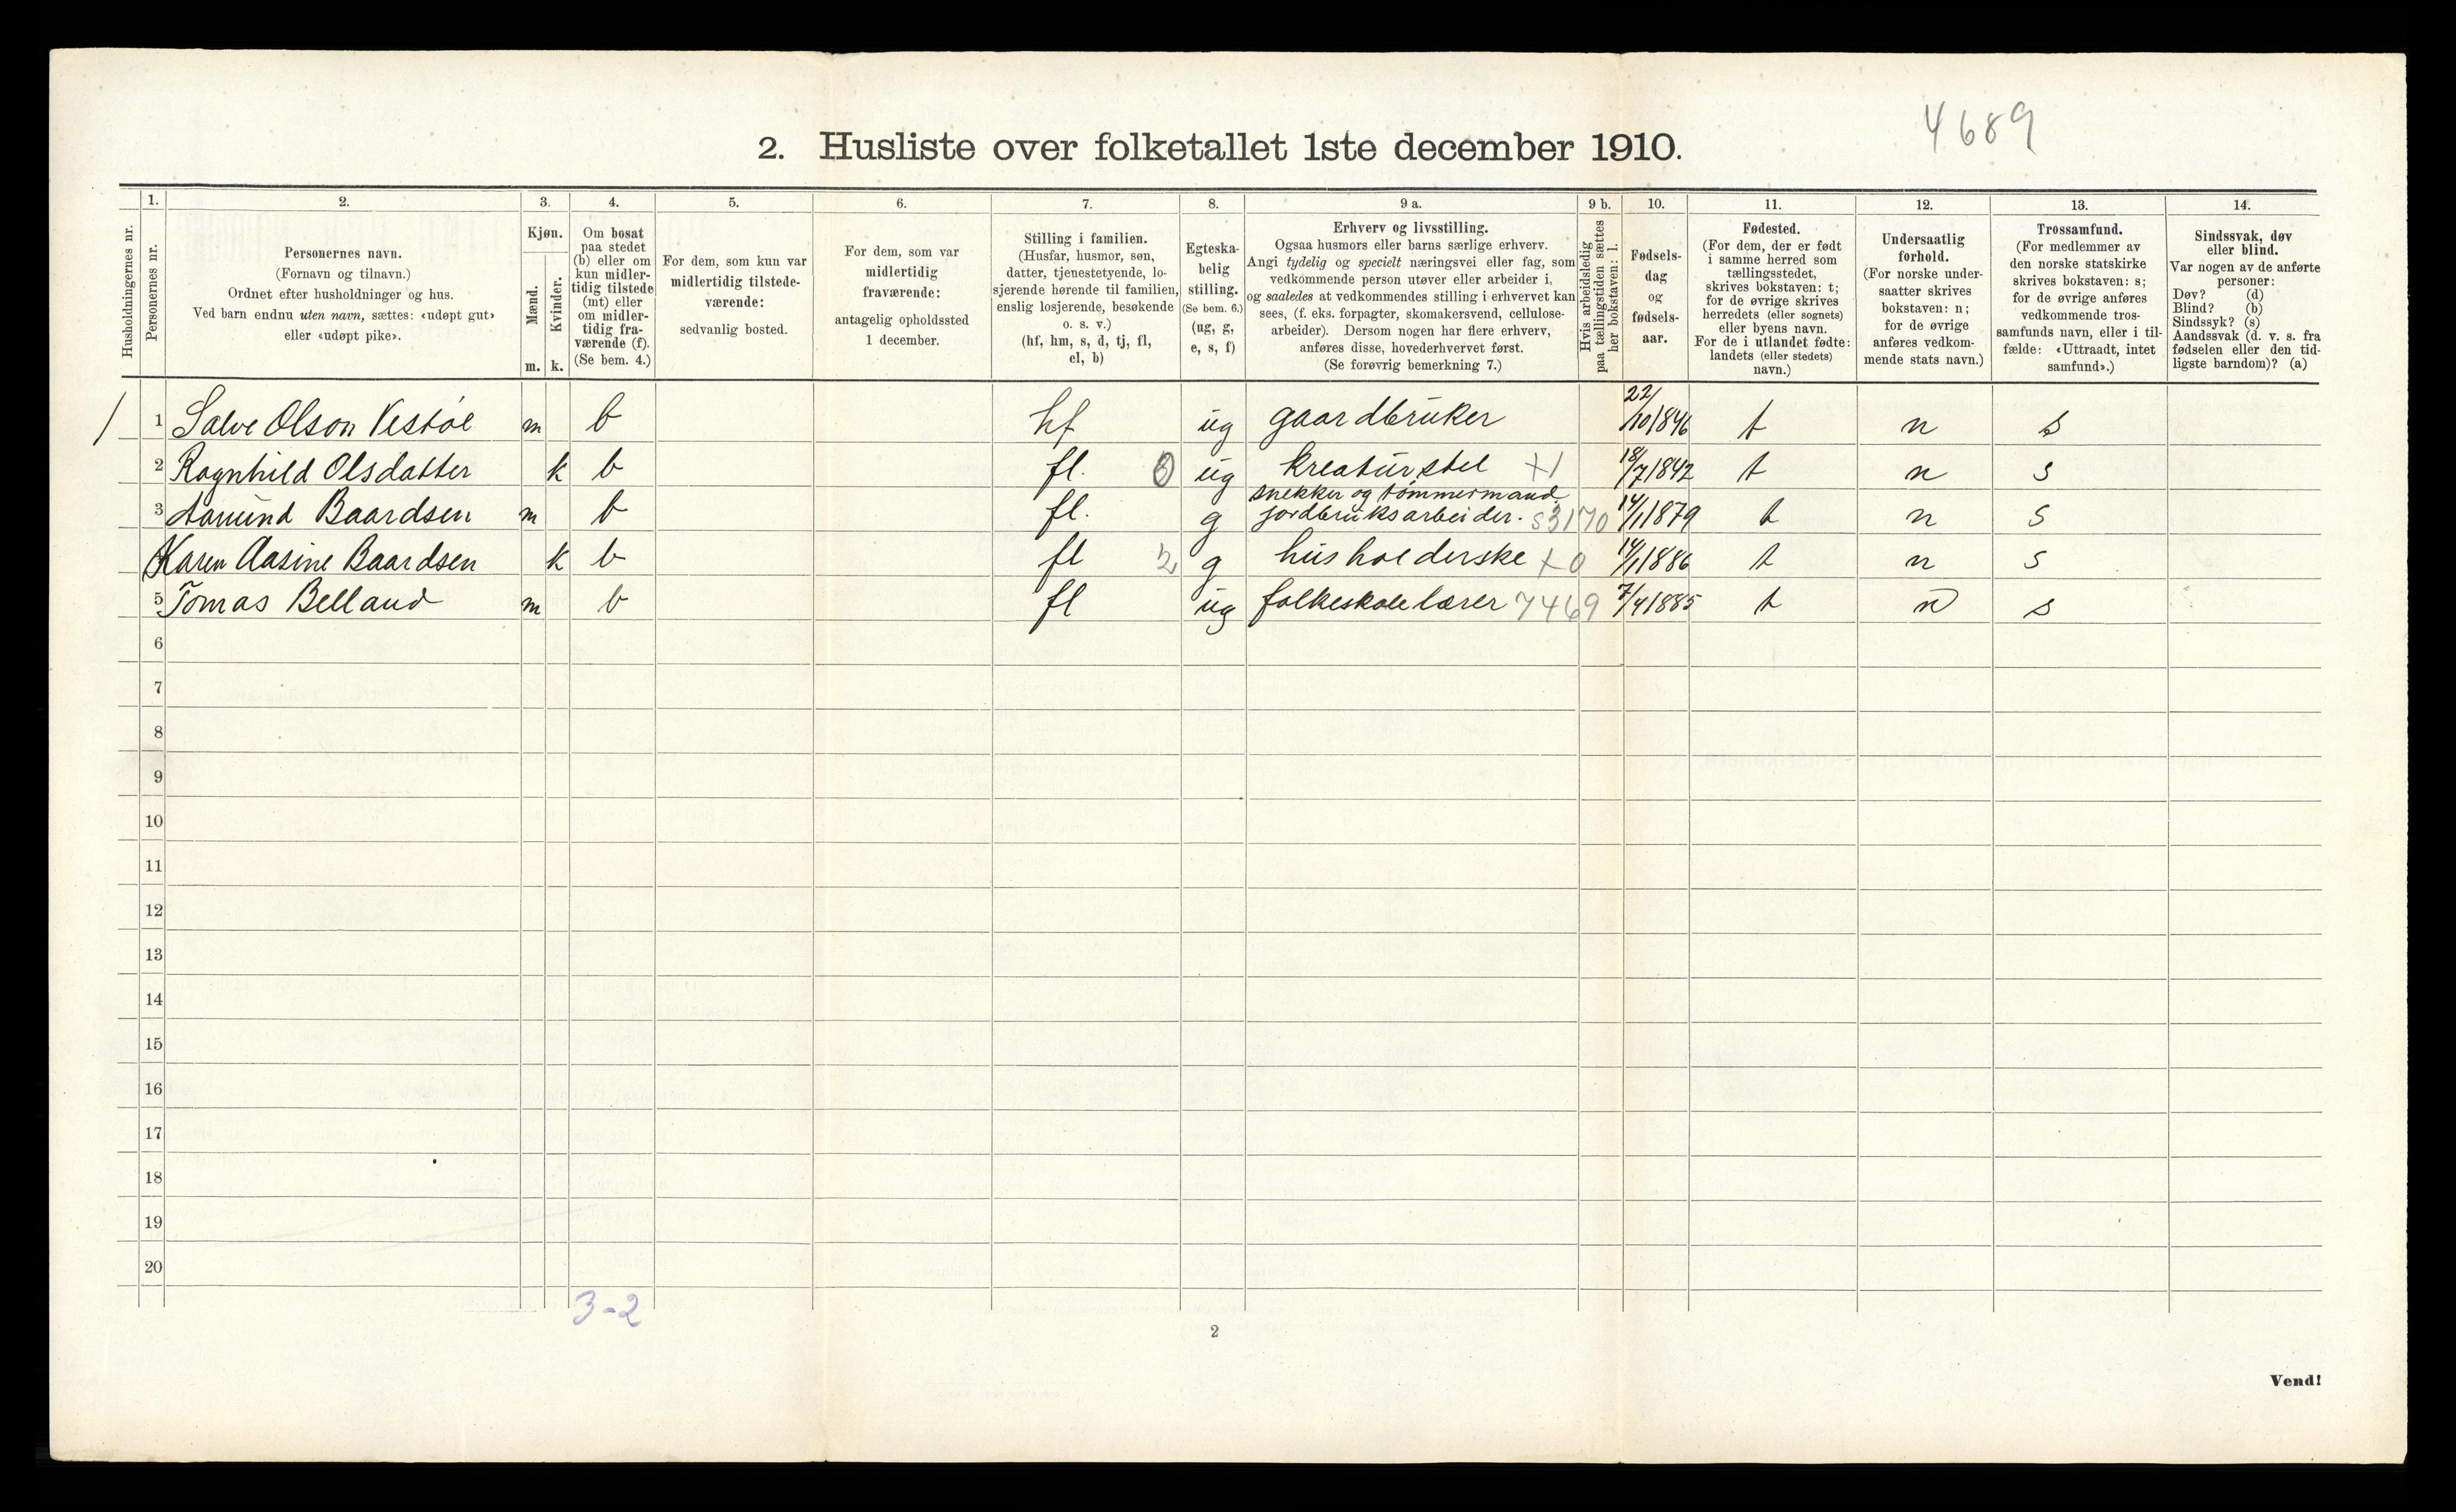 4689
2. Husliste over folketallet 1ste december 1910.
Husholdningernes nr.
1.
Personernes nr.
2.
Personernes navn.
(Fornavn og tilnavn.)
Ordnet efter husholdninger og hus.
Ved barn endnu uten navn, sættes: «udøpt gut»
eller «udøpt pike».
3.
Kjøn.
Mænd.
Kvinder.
m. k.
4.
Om bosat
paa stedet
(b) eller om
kun midler-
tidig tilstede
(mt) eller
om midler-
tidig fra-
værende (f).
(Se bem. 4.)
5.
For dem, som kun var
midlertidig tilstede-
værende:
sedvanlig bosted.
6.
For dem, som var
midlertidig
fraværende:
antagelig opholdssted
1 december.
7.
Stilling i familien.
(Husfar, husmor, søn,
datter, tjenestetyende, lo-
sjerende hørende til familien,
enslig losjerende, besøkende
o. s. v.)
(hf, hm, s, d, tj, fl,
el, b)
8.
Egteska-
belig
stilling.
(Se bem. 6.)
(ug, g,
e, s, f)
9 a.
Erhverv og livsstilling.
Ogsaa husmors eller barns særlige erhverv.
Angi tydelig og specielt næringsvei eller fag, som
vedkommende person utøver eller arbeider i,
og saaledes at vedkommendes stilling i erhvervet kan
sees, (f. eks. forpagter, skomakersvend, cellulose-
arbeider). Dersom nogen har flere erhverv,
anføres disse, hovederhvervet først.
(Se forøvrig bemerkning 7.)
9 b.
Hvis arbeidsledig
paa tællingstiden sættes
her bokstaven: l.
10.
Fødsels-
dag
og
fødsels-
aar.
11.
Fødested.
(For dem, der er født
i samme herred som
tællingsstedet,
skrives bokstaven: t;
for de øvrige skrives
herredets (eller sognets)
eller byens navn.
For de i utlandet fødte:
landets (eller stedets)
navn.)
12.
Undersaatlig
forhold.
(For norske under-
saatter skrives
bokstaven: n;
for de øvrige
anføres vedkom-
mende stats navn.)
13.
Trossamfund.
(For medlemmer av
den norske statskirke
skrives bokstaven: s;
for de øvrige anføres
vedkommende tros-
samfunds navn, eller i til-
fælde: «Uttraadt, intet
samfund».)
14.
Sindssvak, døv
eller blind.
Var nogen av de anførte
personer:
Døv? (d)
Blind? (b)
Sindssyk? (s)
Aandssvak (d. v. s. fra
fødselen eller den tid-
ligste barndom)? (a)
1 Salve Olson Vestøl m b hf ug gaardbruker 22/10 1846 t n s
2 Ragnhild Olsdatter k b fl. 0 ug kreaturstel +1 18/7 1842 t n s
3 Aamund Baardsen m b fl. g snekker og tømmermand
jordbruksarbeider. s3170 14/1 1879 t n s
Karen Aasine Baardsen k b fl 2 g husholderske +0 14/1 1886 t n s
5 Tomas Belland m b fl ug folkeskolelærer 7469 7/4 1885 t n s
6
7
8
9
10
11
12
13
14
15
16
17
18
19
20
3-2
2
Vend!